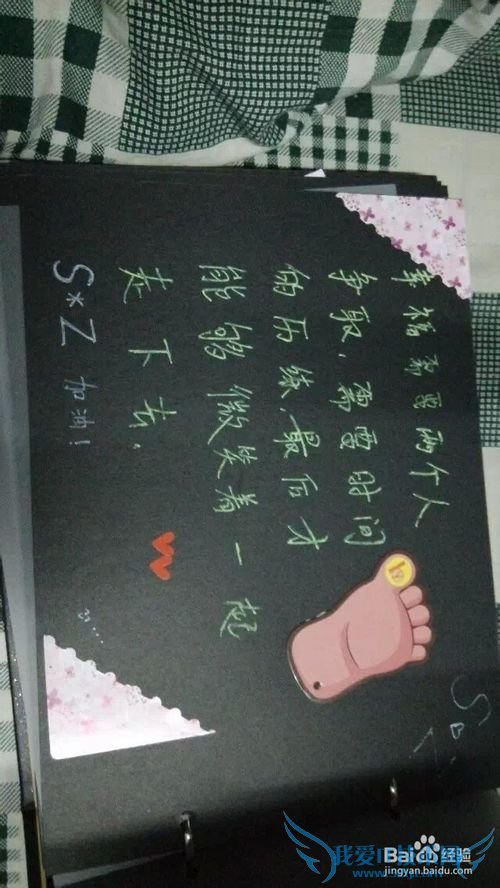 幸福需要两个人
争取,需要时间
的历练,最后才
能够微笑着一起
走下去.
S*Z 加油!
Baidu 经验
jingyan.baidu.com